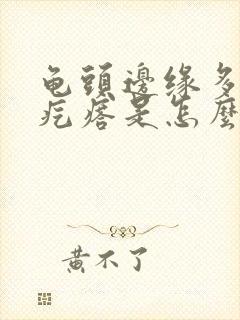 龟頭邊缘多
疙瘩是怎麼
黄不了